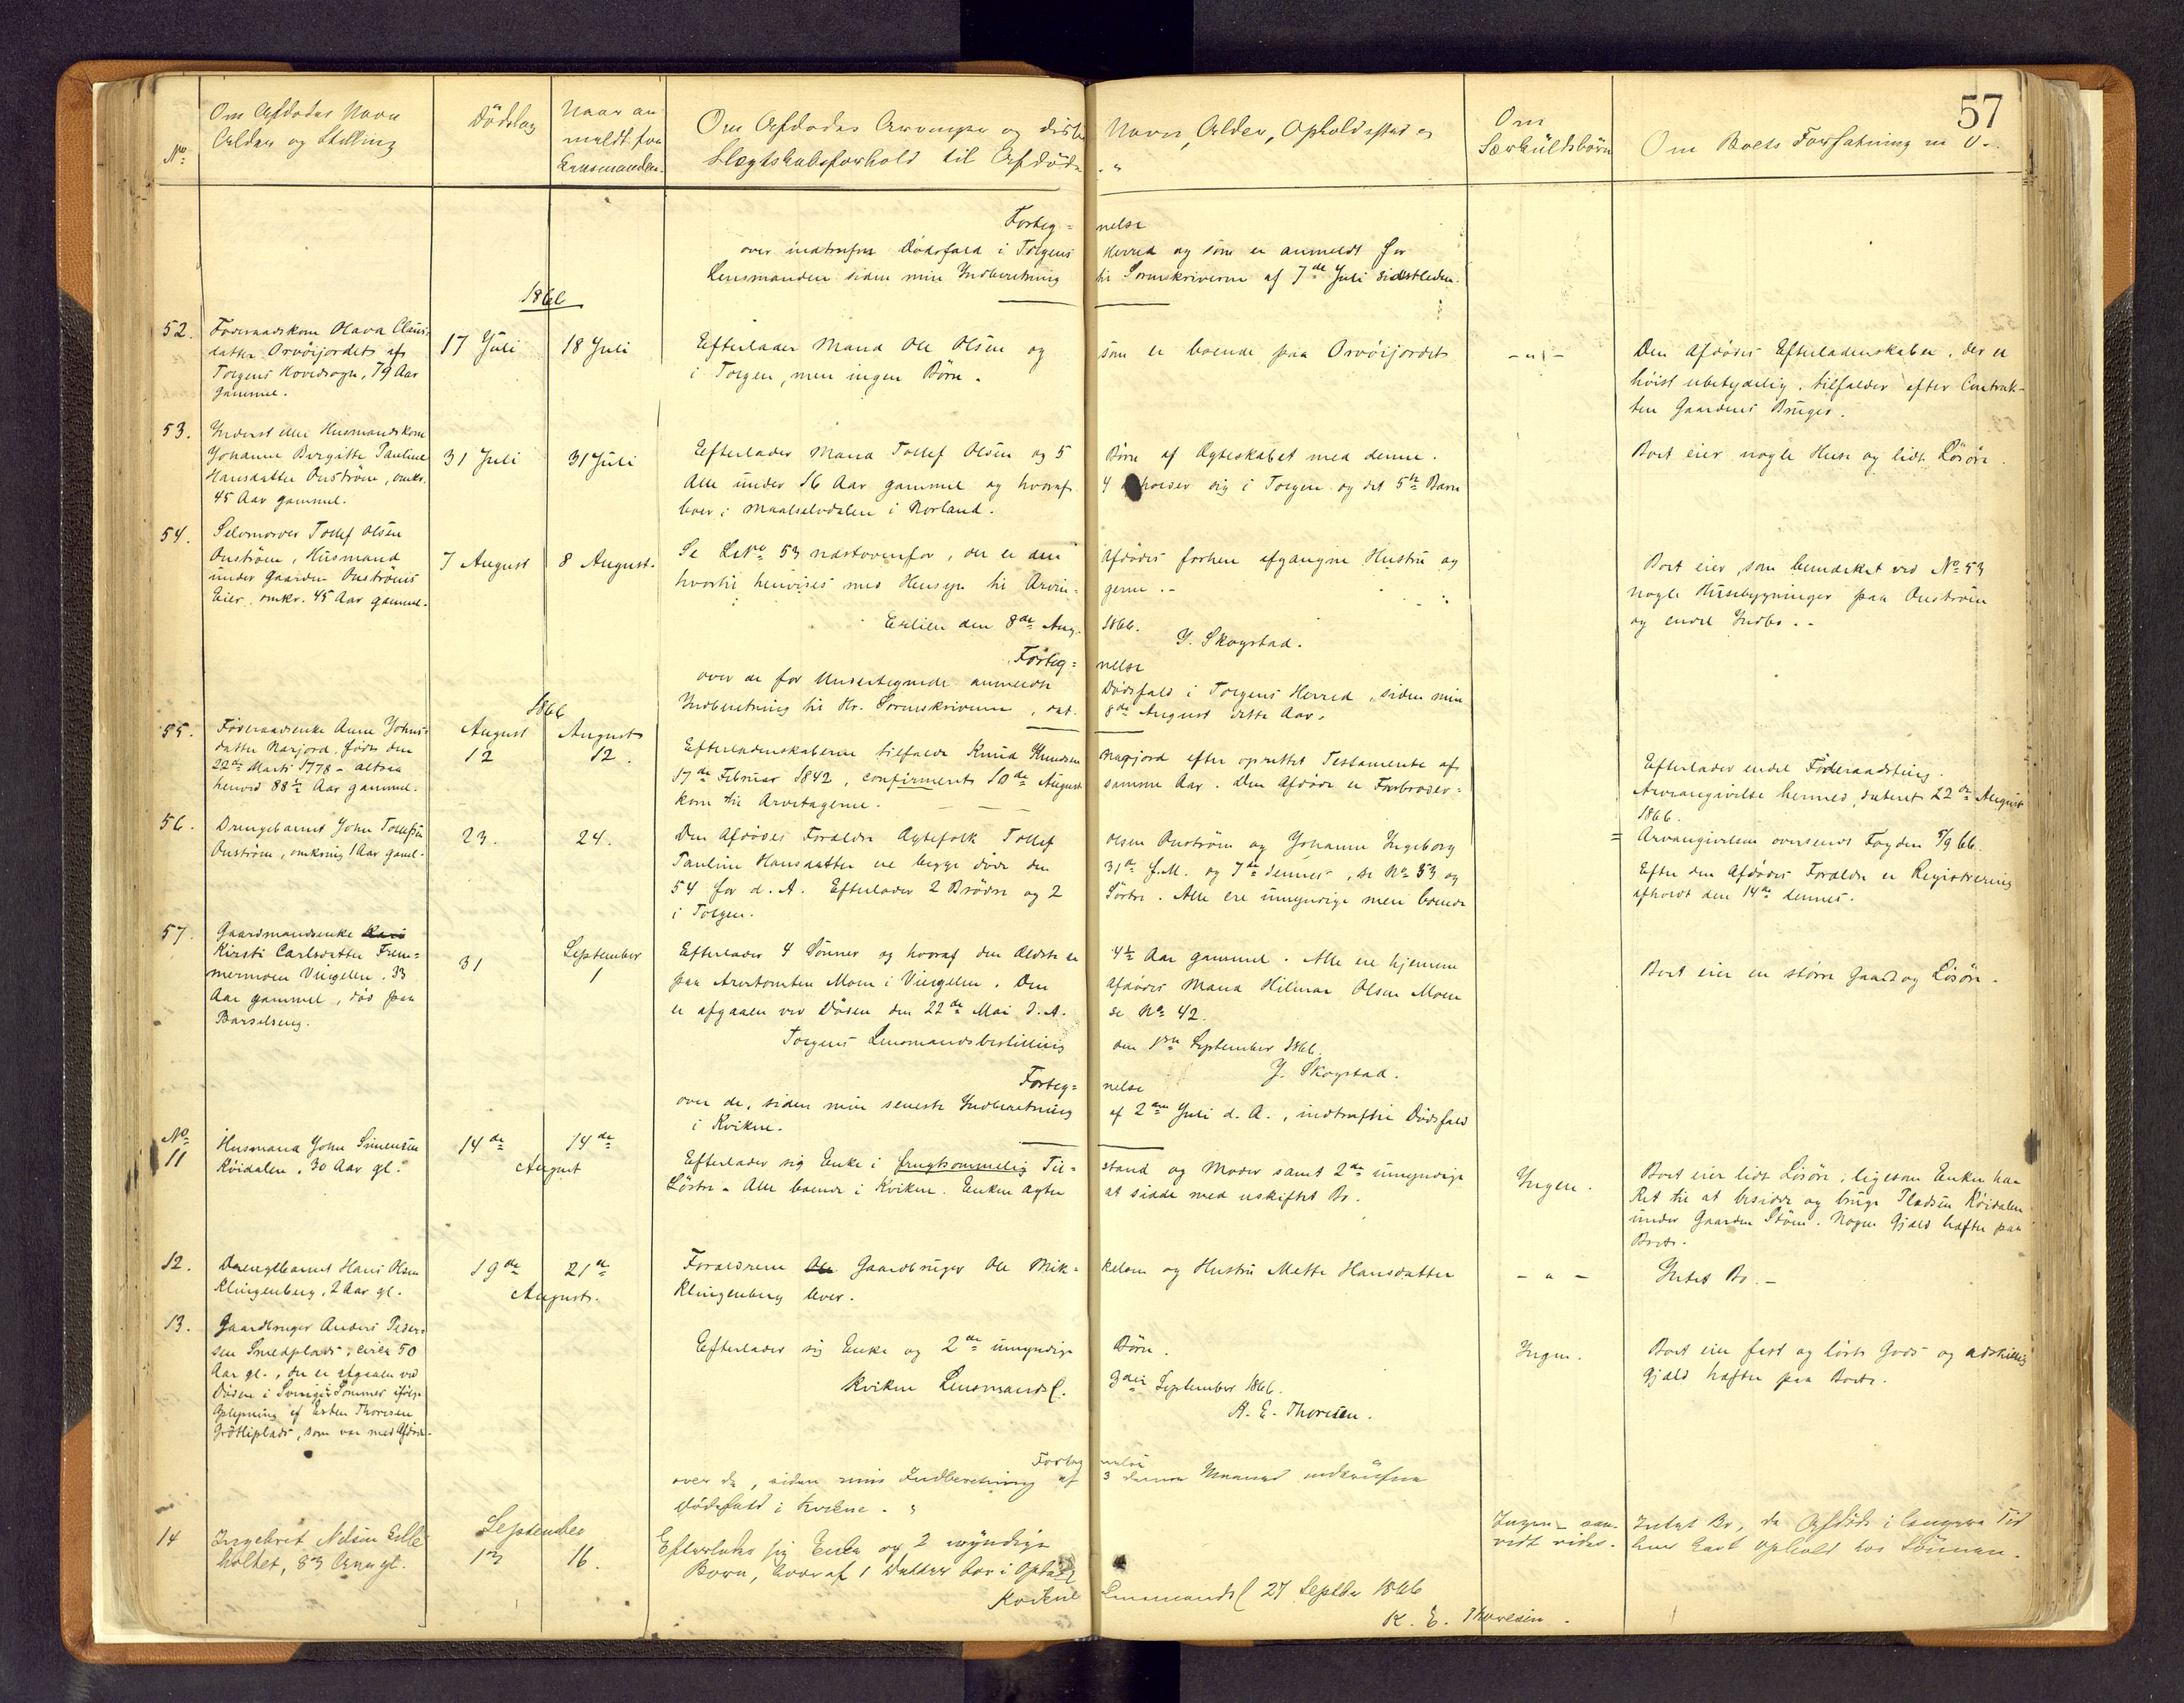 57
No.
Om Afdødes Navn
Alder og Stilling
Dödsdag
Naar an
meldt for
Lensmanden.
Om Afdødes Arvinger og disses Navn, Alder, Opholdssted og
Slegtskabsforhold til Afdöde
Om
Særkuldsbörn
Om Boets Forfatning m V.
Forteg- nelse
over indtrufne Dødsfald i Tolgens Herred og som er anmeldt for
Lensmanden siden min Indberetning til Sorenskriveren af 7de Juli sidstleden.
1866
52.
Føderaadskone Olava Claus-
datter Orvöijordet af
Tolgens Hovedsogn, 79 Aar
gammel.
17 Juli
18 Juli
Efterlader Mand Ole Olsen og som er boende paa Orvöijordet
i Tolgen, men ingen Börn.
- " -
Den Afdødes Efterladenskaber, der er
höist ubetydelig, tilfalder efter Contrak-
ten Gaardens Bruger.
53.
Inderst eller Husmandskone
Johanne Birgitte Pauline
Hansdatter Öuströen, omkr.
45 Aar gammel.
31 Juli
31 Juli
Efterlader Mand Tollef Olsen og 5 Börn af Ægteskabet med denne.
Alle under 16 Aar gammel og hvoraf 4 opholder sig i Tolgen og det 5te Barn
boer i Maalselvdalen i Norland.
Boet eier nogle Huse og lidt Lösöre.
54.
Selvmorder Tollef Olsen
Öuströen, Husmand
under Gaarden Öuströens
Eier, omkr. 45 Aar gammel.
7 August
8 August.
Se LNo 53 næstovenfor, der er den Afdödes forhen afgangne Hustru og
hvortil henvises med Hensyn til Arvin- gerne. -
Boet eier, som bemærket ved No 53
nogle Husebygninger paa Öuströen
og endel Indbo. -
Erlien den 8de Aug. 1866.
J. Skogstad.
Forteg- nelse
over de for Undertegnede anmeldte Dödsfald i Tolgens Herred, siden min
Indberetning til Hr. Sorenskriveren, dat. 8de August dette Aar.
1866
55.
Føderaadsenke Anne Johns-
datter Narjord, født den
22de Marts 1778 - altsaa
henved 88½ Aar gammel.
August
12
August
12.
Efterladenskaberne tilfalde Knud Knudsen Narjord efter oprettet Testamente af
17de Februar 1842, confirmeret 10de August samme Aar. Den Afdøde er Farbroder-
kone til Arvetageren.
Efterlader endel Föderaadsting.
Arveangivelse hermed, dateret 22de August
1866.
= Arvangivelsen oversendt Fogden 5/9 66.
56.
Drengebarnet John Tollefsen
Öuströen, omkring 1 Aar gaml.
23.
24.
Den Afdödes Forældre Ægtefolk Tollef Olsen Öuströen og Johanne Ingeborg
Pauline Hansdatter ere begge döde den 31te f.M. og 7de dennes, se No 53 og
54 for d. A. Efterlader 2 Brödre og 2 Söstre. Alle ere umyndige men boende
i Tolgen.
Efter den Afdödes Forældre er Registrering
afholdt den 14de dennes.
57.
Gaardmandsenke Kari
Kirsti Carlsdatter Frem-
mermoen Vingelen, 33
Aar gammel, död paa
Barselseng.
31
September
1
Efterlader 4 Sönner og hvoraf den ældste er 4½ Aar gammel. Alle ere hjemme
paa Arvetomten Moen i Vingelen. Den afdödes Mand Hilmar Olsen Moen
er afgaaen ved Döden den 22de Mai d. A. se No 42.
Boet eier en större Gaard og Lösöre.
Tolgens Lensmandsbestilling den 1ste September 1866.
J. Skogstad.
Forteg- nelse
over de, siden min seneste Indberetning af 2den Juli d. A., indtrufne Dödsfald
i Kvikne.
No
11
Husmand John Simensen
Röidalen, 30 Aar gl.
14de
14de
August
Efterlader sig Enke i frugtsommelig Til- stand og Moder samt 2de umyndige
Söstre - Alle boende i Kvikne. Enken agter at sidde med uskiftet Bo.
Ingen.
Boet eier lidt Lösöre, ligesom Enken har
Ret til at besidde og bruge Pladsen Röidalen
under Gaarden Stöen. Nogen Gjeld hefter paa
Boet.
12.
Drengebarnet Hans Olsen
Klingenberg, 2 Aar gl.
19de
21de
August.
Forældrene Ole Gaardbruger Ole Mik- kelsen og Hustru Mette Hansdatter
Klingenberg lever.
- " -
Intet Bo. -
13.
Gaardbruger Anders Peder-
sen Smedplads, circa 50
Aar gl., der er afgaaen ved
Döden i Sverige Sommer ifölge
Oplysning af Esten Thoresen
Gröttliplads, som var med Afdöde.
Efterlader sig Enke og 2de umyndige Börn.
Ingen.
Boet eier fast og löst Gods og adskillig
Gjeld hefter paa Boet.
Kvikne Lensmandsf. 3die September 1866.
A. E. Thoresen.
Forteg nelse
over de, siden min Indberetning af 3 denne Maaned indtrufne
Dödsfald i Kvikne.
14
Ingebret Nilsen Eslle
holtet, 83 Aar gl.
September
13
16.
Efterlader sig Enke og 2 myndige
Börn, hvoraf 1 Datter bor i Opdal
Ingen - saa
vidt vides.
Intet Bo, da Afdöde i længere Tid
har havt Ophold hos Sönnen.
Kvikne Lensmandsf 27 Septbr 1866
K. E. Thoresen.